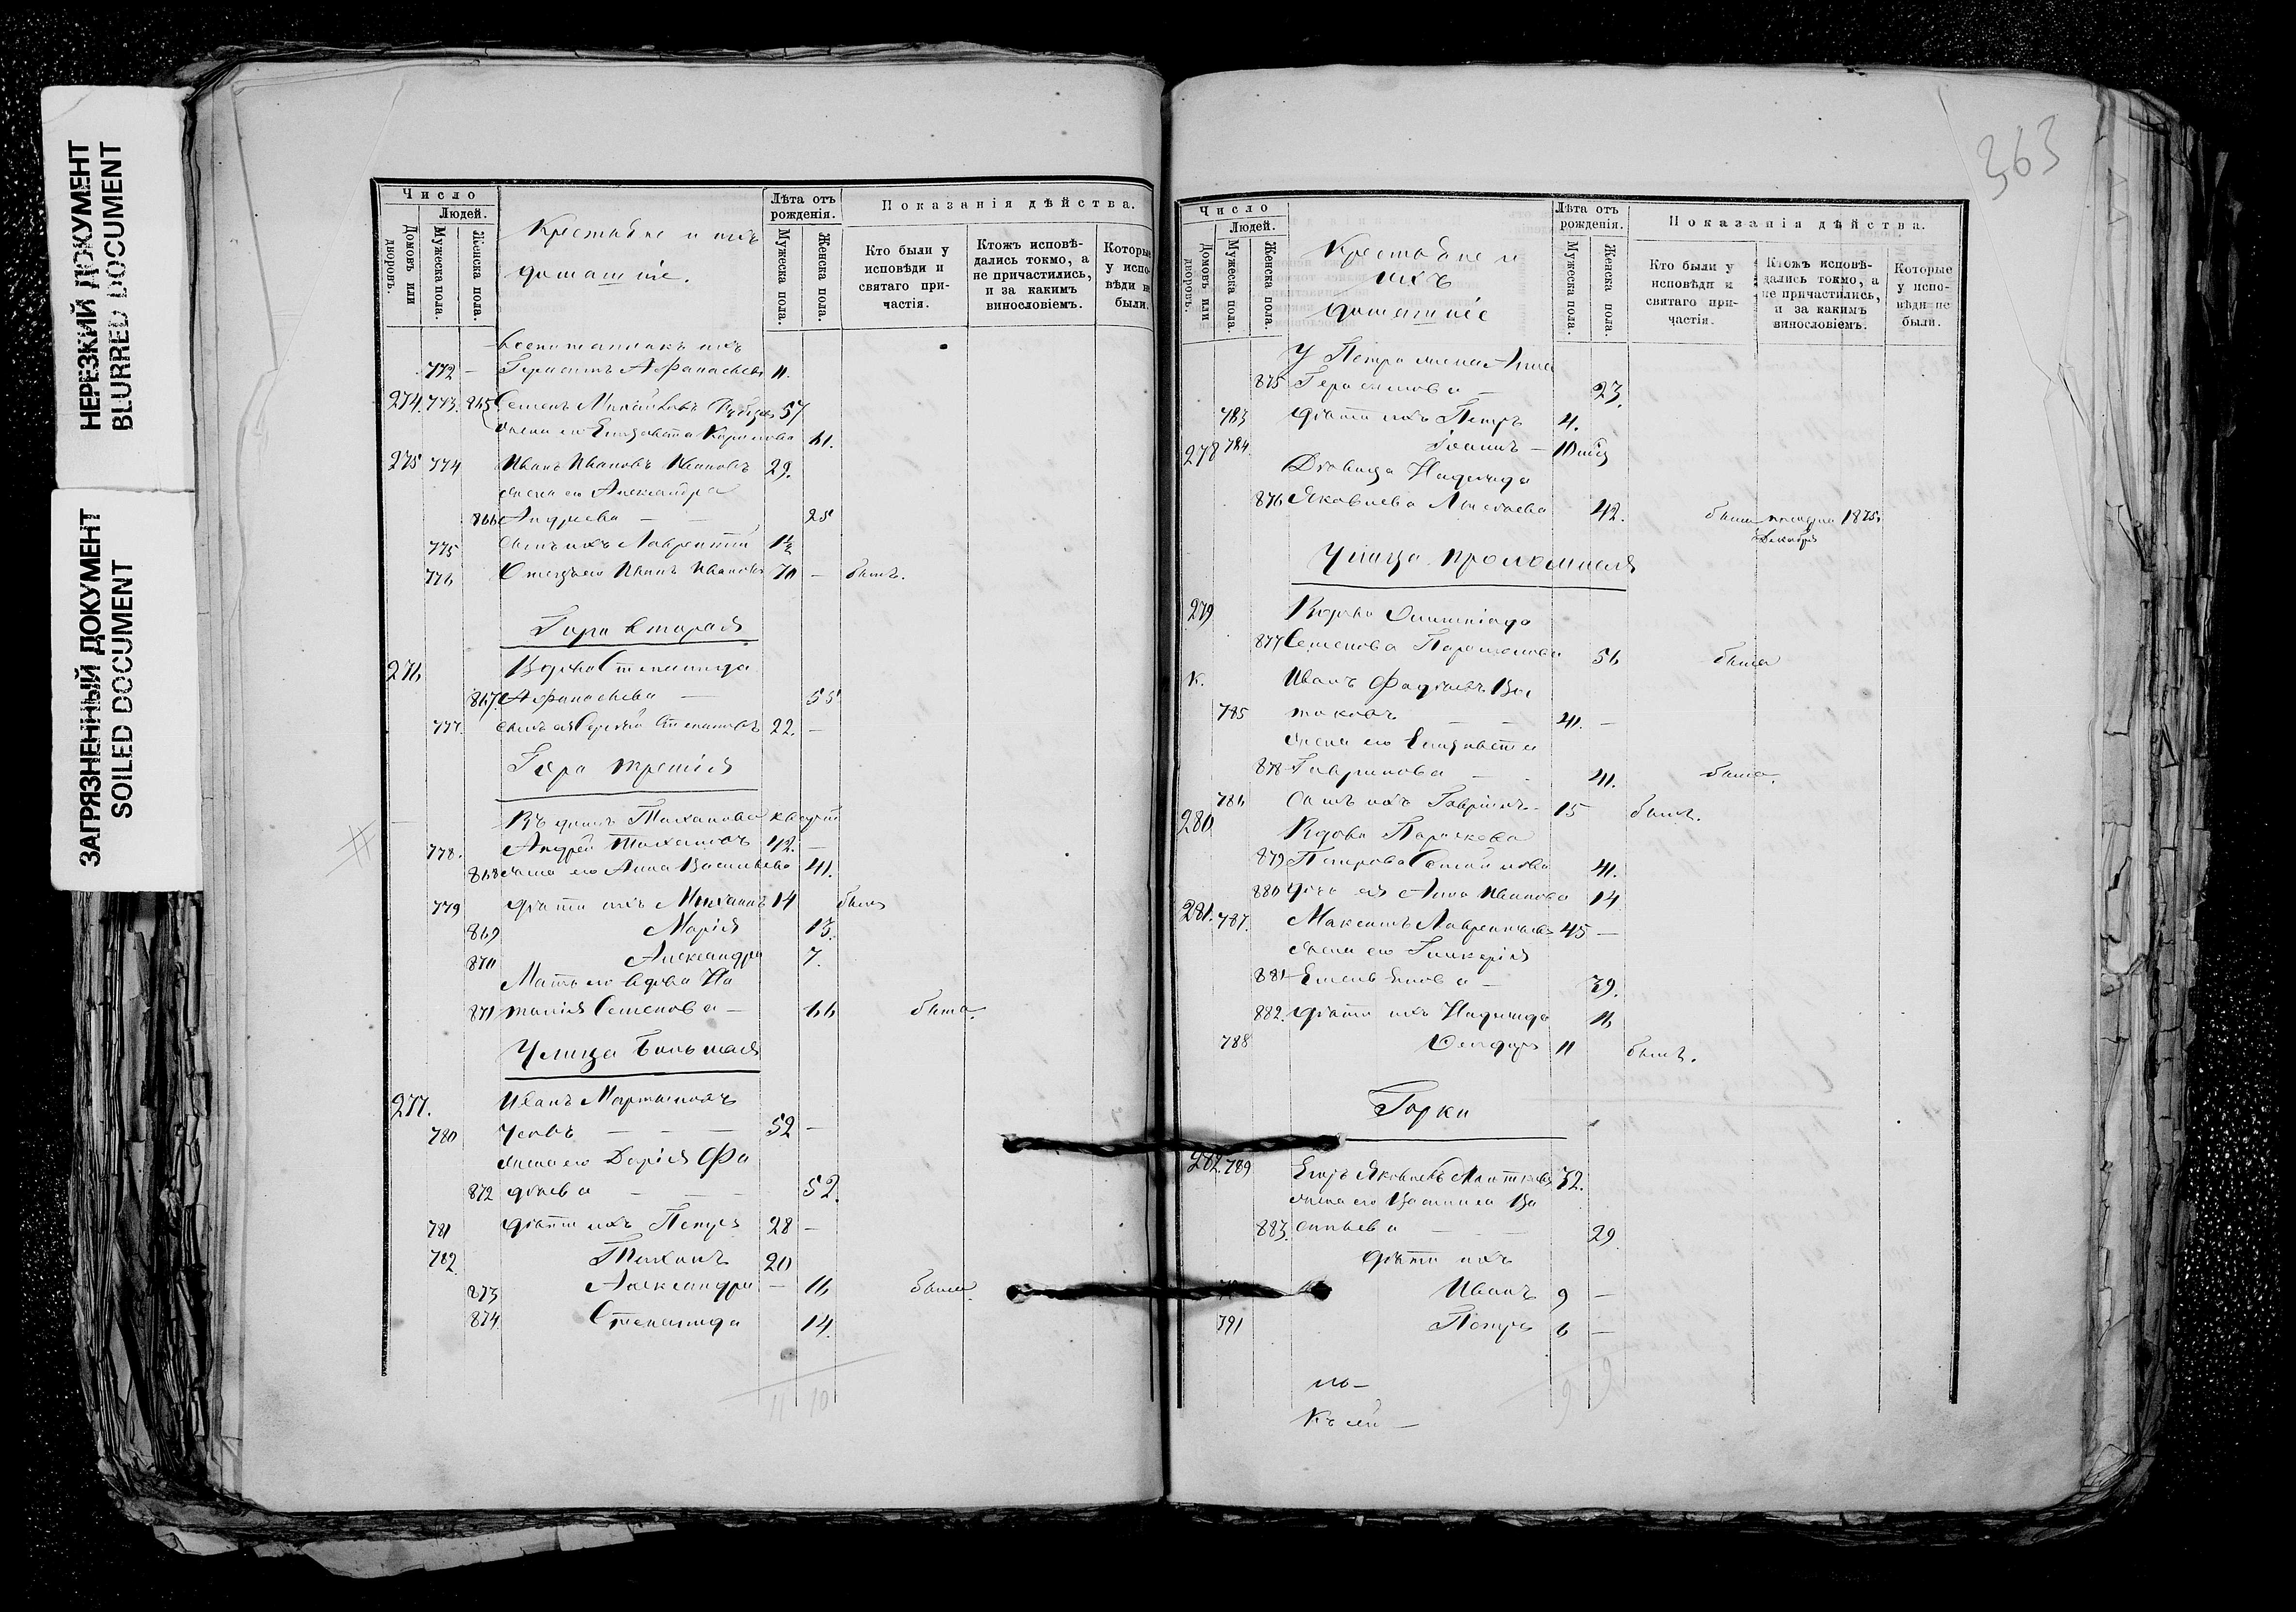 НЕРЕЗКИЙ ДОКУМЕНТ
BLURRED DOCUMENT
ЗАГРЯЗНЕННЫЙ ДОКУМЕНТ
SOILED DOCUMENT
Число
Людей.
Домовъ или дворовъ.
Мужеска пола.
Женска пола.
Крестьяне и ихъ
домашніе.
Лѣта отъ рожденія.
Мужеска пола.
Женска пола.
Показанія дѣйства.
Кто были у исповѣди и святаго причастія.
Ктожъ исповѣдались токмо, а не причастились, и за какимъ винословіемъ.
Которые у исповѣди не были.
воспитанникъ ихъ
772 – 11.
274. 773. 865 Семенъ 57
жена его Елизавета 61.
275 774 Иванъ Ивановъ Ивановъ 29.
жена его Александра
866 Андреева — — 25
775 сынъ ихъ Лаврентій 1½
776 Отецъ его Иванъ Ивановъ 70 – былъ.
Гора вторая
276 Вдова Степанида
867 Афанасьева — 55
777. сынъ ея Сергѣй Степановъ 22. –
Гора третія
Въ домѣ Тиханова
778. Андрей Тихановъ 42. –
868 жена его Анна Васильева 41.
779 дѣти ихъ Михаилъ 14 былъ
869 Марія 13.
870 Александра 7.
Мать его вдова На
871 талія Семенова – 66 была.
Улица Большая
277. Иванъ Мартиновъ
780 Усовъ — — — 52 –
жена его Дарія Фа
872 дѣева — — — 52.
781 дѣти ихъ Петръ 28 –
782. Тиханъ 20
873 Александра – 16 была.
874. Степанида 14.
11 10
363
Число
Людей.
Домовъ или дворовъ.
Мужеска пола.
Женска пола.
Крестьяне и
ихъ
домашніе
Лѣта отъ рожденія.
Мужеска пола.
Женска пола.
Показанія дѣйства.
Кто были у исповѣди и святаго причастія.
Ктожъ исповѣдались токмо, а не причастились, и за какимъ винословіемъ.
Которые у исповѣди не были.
У Петра жена Анна
875 Герасимова — 23.
783 дѣти ихъ Петръ 4.
784. Іоаннъ –
278 Дѣвица Надежда
876 Яковлева 42. была 1875.
Декабря
Улица проломная
279 Вдова Олимпіада
877 Семенова 56 была
К. Иванъ Фадѣевъ
785 41. –
жена его Елизавета
878 Гаврилова — 41. была.
786 Сынъ ихъ Гавріилъ – 15 былъ.
280 Вдова Параскева
879 Петрова 41.
880 дочь ея Анна Иванова 14
281. 787. Максимъ Лаврентьевъ 45 –
жена его Гликерія
881 Емельянова – 39.
882. дѣти ихъ Надежда 16
788 11 былъ.
Горки
282. 789 Егоръ Яковлевъ 32.
жена его Василиса Ва
883. сильева — — 29
дѣти ихъ
Иванъ 9 –
791 Петръ 6 –
9 9